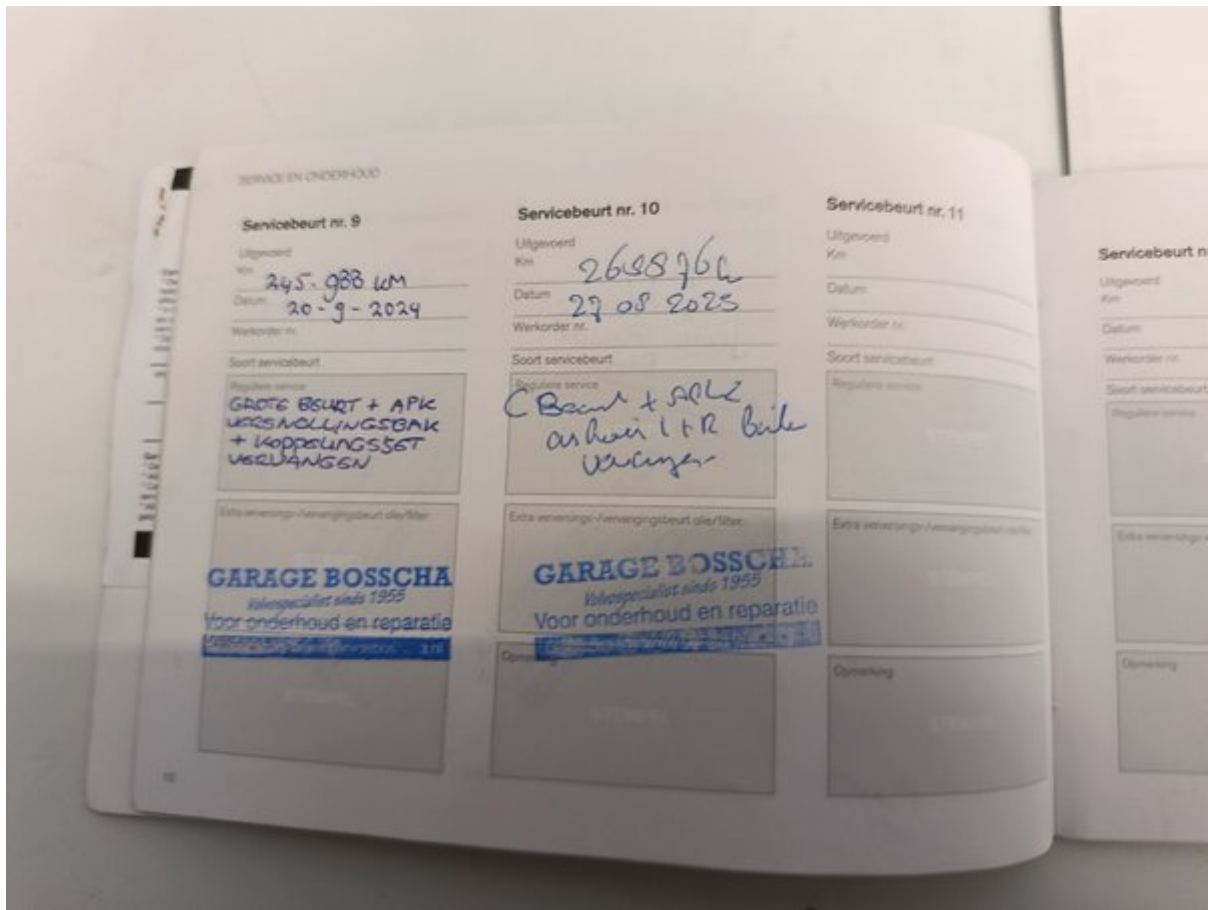 SERVICE EN ONDERHOUD
Servicebeurt nr. 9
Uitgevoerd
Km 245.988 KM
Datum 20-9-2024
Werkorder nr.
Soort servicebeurt
Reguliere service
GROTE BEURT + APK
VERSNELLINGSBAK
+ KOPPELINGSSET
VERVANGEN
Extra verversings-/vervangingsbeurt olie/filter
GARAGE BOSSCHA
Volvospecialist sinds 1955
Voor onderhoud en reparatie
Servicebeurt nr. 10
Uitgevoerd
Km
Datum 27 08 2025
Werkorder nr.
Soort servicebeurt
Reguliere service
C Beurt + APK
L + R
Extra verversings-/vervangingsbeurt olie/filter
GARAGE BOSSCHA
Volvospecialist sinds 1955
Voor onderhoud en reparatie
Opmerking
Servicebeurt nr. 11
Uitgevoerd
Km
Datum
Werkorder nr.
Soort servicebeurt
Reguliere service
Extra verversings-/vervangingsbeurt olie/filter
Opmerking
Servicebeurt n
Uitgevoerd
Km
Datum
Werkorder nr.
Soort servicebeurt
Reguliere service
Extra verversings-
Opmerking